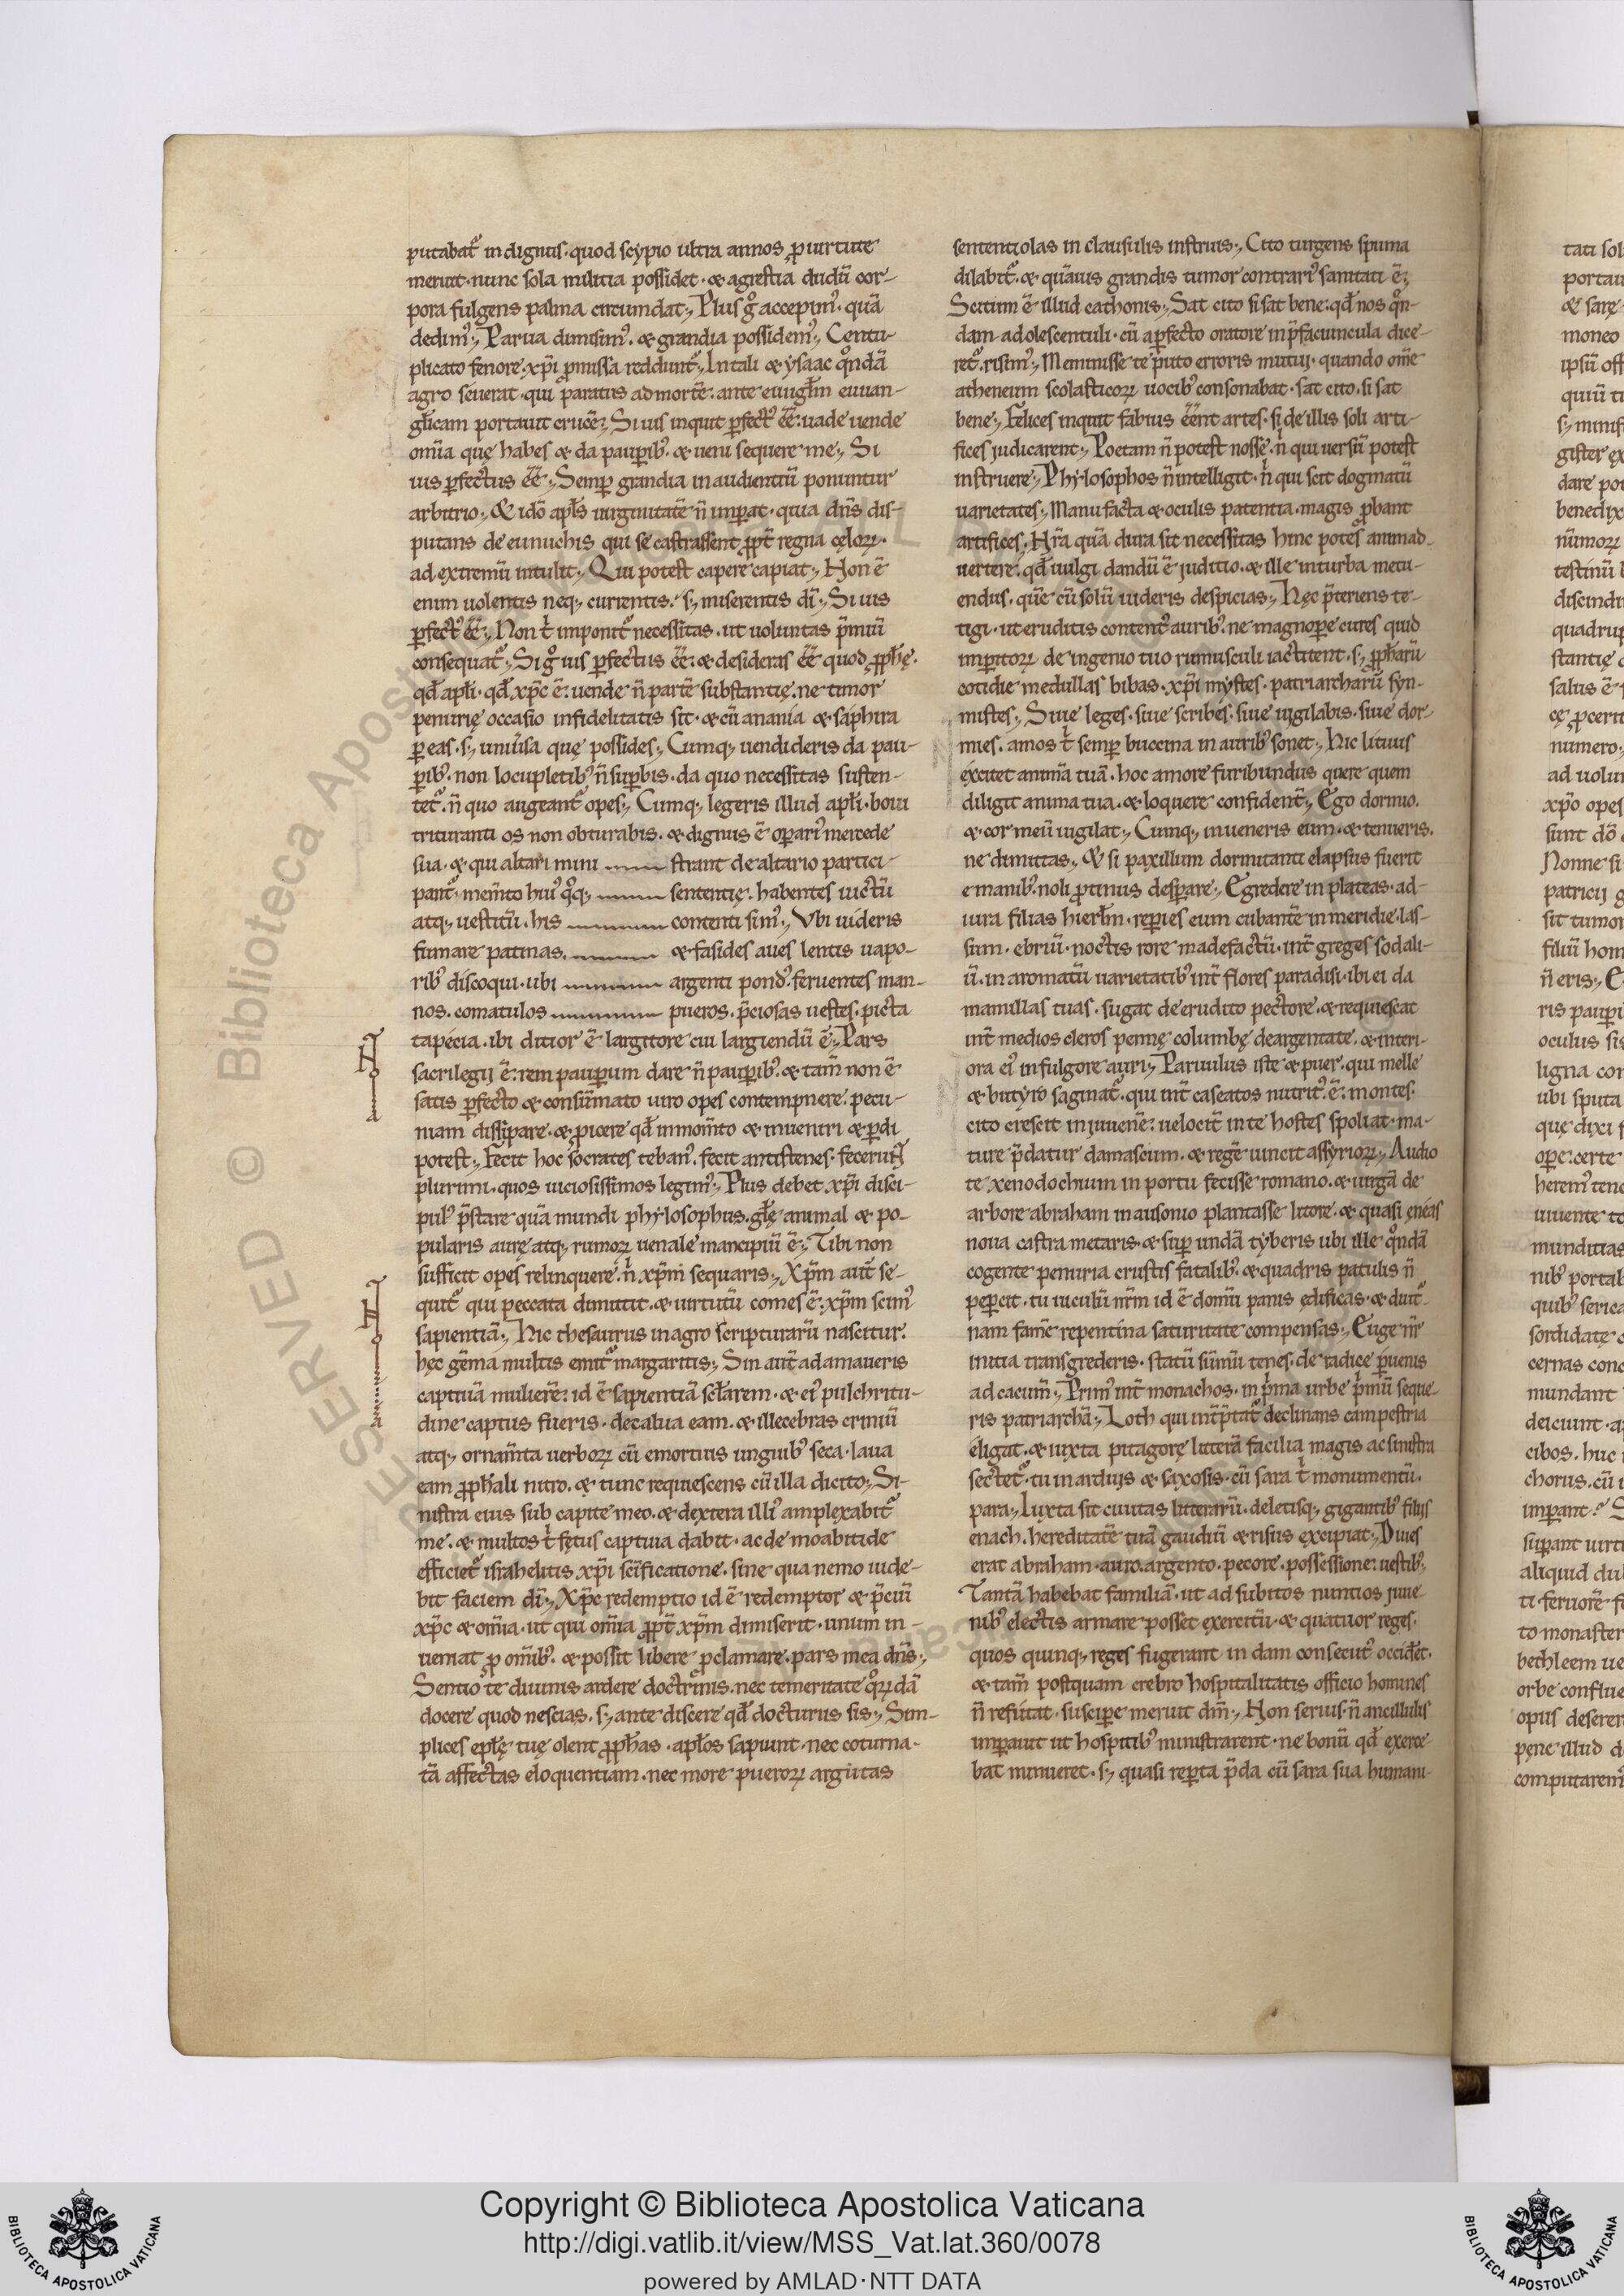 putabat᷒ indignus. quod scypio ultra annos ꝓ uirtute
meruit. nunc sola militia possidet. & agrestia dudū cor-
pora fulgens palma circundat., Plus gͦ accepim᷒. quā
dedim᷒., Parua dimisim᷒. & grandia possidem᷒., Centu-
plicato fenore. xp̄i ꝓmissa reddunt᷒., In tali & ysaac qͦndā
agro seuerat. qui paratus ad mortē. ante euuglīm euuan-
glīcam portauit crucē., Si uis inquit ꝑfect᷒ ēē. uade uende
om̄ia que habes & da pauꝑib᷒. & ueni sequere me., Si
uis ꝑfectus ēē., Semꝑ grandia in audientiū ponuntur
arbitrio., & idō apl̄s uirginitatē n̄ imꝑat. quia dn̄s dis-
putans de eunuchis qui se castrassent ꝓpt̄ regna cęloꝝ.
ad extremū intulit., Qui potest capere capiat., Non ē
enim uolentis neq; currentis. s; miserentis dī., Si uis
ꝑfect᷒ ēē., Non t̍ imponit᷒ necessitas. ut uoluntas p̄miū
consequat᷒., Si gͦ uis ꝑfectus ēē. & desideras ēē quod ꝓph̄ę.
qd̄ apl̄i. qd̄ xp̄c ē. uende n̄ partē substantię. ne timor
penurię occasio infidelitatis sit. & cū anania & saphira
ꝑeas. s; uniu̍sa quę possides., Cumq; uendideris da pau-
ꝑib᷒. non locupletib᷒ n̄ suꝑbis. da quo necessitas susten-
tet᷒. n̄ quo augeant᷒ opes., Cumq; legeris illud apl̄i. boui
trituranti os non obturabis. & dignus ē oꝑari᷒ mercede
sua. & qui altari mini strant de altario partici-
pant᷒. mem̄to hui᷒ qͦq; sententię. habentes uictū
atq; uestitū. his contenti sim᷒., Vbi uideris
fumare patinas. & fasides aues lentis uapo-
rib᷒ discoqui. ubi argenti pond᷒. feruentes man-
nos. comatulos pueros. p̄ciosas uestes. picta
tapecia. ibi ditior ē largitore cui largiendū ē., Pars
sacrilegij ē. rem pauꝑum dare n̄ pauꝑib᷒. & tam̄ non ē
satis ꝑfecto & consūmato uiro opes contempnere. pecu-
niam dissipare. & ꝓicere qd̄ in mom̄to & inueniri & ꝑdi
potest., Fecit hoc socrates teban᷒. fecit antistenes. fecerunt
plurimi. quos uiciosissimos legim᷒., Plus debet xp̄i disci-
pul᷒ p̄stare quā mundi phylosophus. gl̄ę animal & po-
pularis aurę atq; rumoꝝ uenale mancipiū ē., Tibi non
sufficit opes relinquere. n̍ xp̄m sequaris., Xp̄m aut̄ se-
quit᷒ qui peccata dimittit. & uirtutū comes ē. xp̄m scim᷒
sapientiā., Hic thesaurus in agro scripturarū nascitur.
hęc gēma multis emit᷒ margaritis., Sin aut̄ adamaueris
captiuā mulierē. id ē sapientiā scl̄arem. & ei᷒ pulchritu-
dine captus fueris. decalua eam. & illecebras criniū
atq; ornam̄ta uerboꝝ cū emortuis unguib᷒ seca. laua
eam ꝓph̄ali nitro. & tunc requiescens cū illa dicito., Si-
nistra eius sub capite meo. & dextera illi᷒ amplexabit᷒
me. & multos t̍ fętus captiua dabit. ac de moabitide
efficiet᷒ israhelitis. xp̄i scīficatione. sine qua nemo uide-
bit faciem dī., Xp̄c redemptio id ē redemptor & p̄ciū
xp̄c & om̄ia. ut qui om̄ia ꝓpt̄ xp̄m dimiserit. unum in-
ueniat ꝓ om̄ib᷒. & possit libere ꝓclamare. pars mea dn̄s.,
Sentio te diuinis ardere doctrinis. nec temeritate qͦꝝdā
docere quod nescias. s; ante discere qd̄ docturus sis., Sim-
plices epl̄ę tuę olent ꝓph̄as. apl̄os sapiunt. nec coturna-
tā affectas eloquentiam. nec more pueroꝝ argutas
sententiolas in clausulis instruis., Cito turgens spuma
dilabit᷒. & quāuis grandis tumor contrari᷒ sanitati ē.,
Scitum ē illud cathonis., Sat cito si sat bene. qd̄ nos qͦn-
dam adolescentuli. cū a ꝑfecto oratore in p̄faciuncula dice-
ret᷒. risim᷒., Meminisse te puto erroris mutui. quando om̄e
atheneum scolasticoꝝ uocib᷒ consonabat. sat cito. si sat
bene., Felices inquit fabius ēēnt artes. si de illis soli arti-
fices judicarent., Poetam n̄ potest nosse. n̍ qui uersū potest
instruere., Phylosophos n̄ intelligit. n̍ qui scit dogmatū
uarietates., Manu facta & oculis patentia. magis ꝓbant
artifices., Nr̄a quā dura sit necessitas hinc potes animad-
uertere. qd̄ uulgi dandū ē juditio. & ille in turba metu-
endus. quē cū solū uideris despicias., Hęc p̄teriens te-
tigi. ut eruditis content᷒ aurib᷒. ne magnoꝑe cures quid
imꝑitoꝝ de ingenio tuo rumusculi iactitent. s; ꝓph̄arū
cotidie medullas bibas. xp̄i mystes. patriarcharū syn-
mistes., Siue leges. siue scribes. siue uigilabis. siue dor-
mies. amos t̍ semꝑ buccina in aurib᷒ sonet., Hic lituus
excitet animā tuā. hoc amore furibundus quere quem
diligit anima tua. & loquere confident̄., Ego dormio.
& cor meū uigilat., Cumq; inueneris eum. & tenueris.
ne dimittas., & si paxillum dormitanti elapsus fuerit
e manib᷒. noli ꝓtinus desꝑare., Egredere in plateas. ad-
iura filias hierl̄m. reꝑies eum cubantē in meridie. las-
sum. ebriū. noctis rore madefactū. int̄ greges sodali-
ū. in aromatū uarietatib᷒ int̄ flores paradisi. ibi ei da
mamillas tuas. sugat de erudito pectore. & requiescat
int̄ medios cleros pennę columbę deargentate. & interi-
ora ei᷒ in fulgore auri., Paruulus iste & puer. qui melle
& butyro saginat᷒. qui int̄ caseatos nutrit᷒ ē. montes.
cito crescit in juuenē. uelocit̄ in te hostes spoliat. ma-
ture p̄datur damascum. & regē uincit assyrioꝝ., Audio
te xenodochium in portu fecisse romano. & uirgā de
arbore abraham in ausonio plantasse litore. & quasi eneas
noua castra metaris. & suꝑ undā tyberis ubi ille qͦndā
cogente penuria crustis fatalib᷒. & quadris patulis n̄
peꝑcit. tu uiculū nr̄m id ē domū panis edificas. & diut̄-
nam famē repentina saturitate compensas., Euge nr̄
initia transgrederis. statū sūmū tenes. de radice ꝑuenis
ad cacum̄., Prim᷒ int̄ monachos. in p̍ma urbe p̍mū seque-
ris patriarchā., Loth qui int̄p̄tat᷒ declinans campestria
eligat. & iuxta pitagorę litterā facilia magis ac sinistra
sectet᷒. tu in arduis & saxosis. cū sara t̍ monumentū.
para., Iuxta sit ciuitas litterarū. deletisq; gigantib᷒ filijs
enach. hereditatē tuā gaudiū & risus excipiat., Diues
erat abraham. auro. argento. pecore. possessione. uestib᷒.
Tantā habebat familiā. ut ad subitos nuntios juue-
nib᷒ electis armare posset exercitū. & quatuor reges.
quos quinq; reges fugerant in dam consecut᷒ occidet.
& tam̄ postquam crebro hospitalitatis officio homines
n̄ refutat. suscipe meruit dn̄m., Non seruis. n̄ ancillulis
imꝑauit ut hospitib᷒ ministrarent. ne bonū qd̄ exerce-
bat minueret. s; quasi reꝑta p̄da cū sara sua humani-
tati sol
portau
& sare
moneo
ipsū off
quiū ti
gister ex
dare po
benedix
nūmoꝝ
testinū
discindi
quadrup
stantię
salus ē
numero.,
ad uolu
xp̄o opes
sunt dō
Nonne si
patricij g
sit tumor
filiū hom
n̄ eris., E
ris pauꝑi
oculus sis
ligna con
ubi sputa
que dixi
oꝑe. certe
herem᷒ tene
uiuente to
munditias
nib᷒ portab
quib᷒ serica
sordidate
cernas conc
mundant
deiciunt. a
cibos. huc
chorus. cū
imꝑant.
suꝑant uirt
aliquid du
ti feruore f
to monaster
bethleem ue
orbe conflue
opus deserer
pęne illud d
computarem᷒
Copyright © Biblioteca Apostolica Vaticana
http://digi.vatlib.it/view/MSS_Vat.lat.360/0078
powered by AMLAD·NTT DATA
BIBLIOTECA APOSTOLICA VATICANA
BIBLIOTECA APOSTOLICA VATICANA